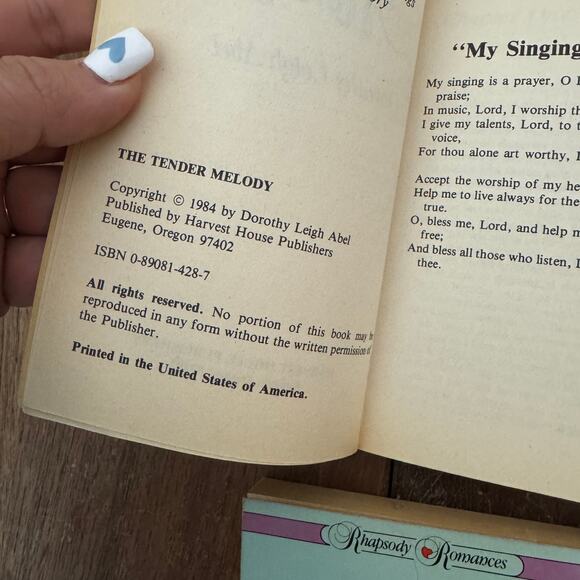 THE TENDER MELODY
Copyright © 1984 by Dorothy Leigh Abel
Published by Harvest House Publishers
Eugene, Oregon 97402
ISBN 0-89081-428-7
All rights reserved. No portion of this book may be
reproduced in any form without the written permission of
the Publisher.
Printed in the United States of America.
"My Singing
My singing is a prayer, O
praise;
In music, Lord, I worship
I give my talents, Lord, to
voice,
For thou alone art worthy,
Accept the worship of my
Help me to live always for
true.
O, bless me, Lord, and help
free;
And bless all those who listen,
thee.
Rhapsody Romances